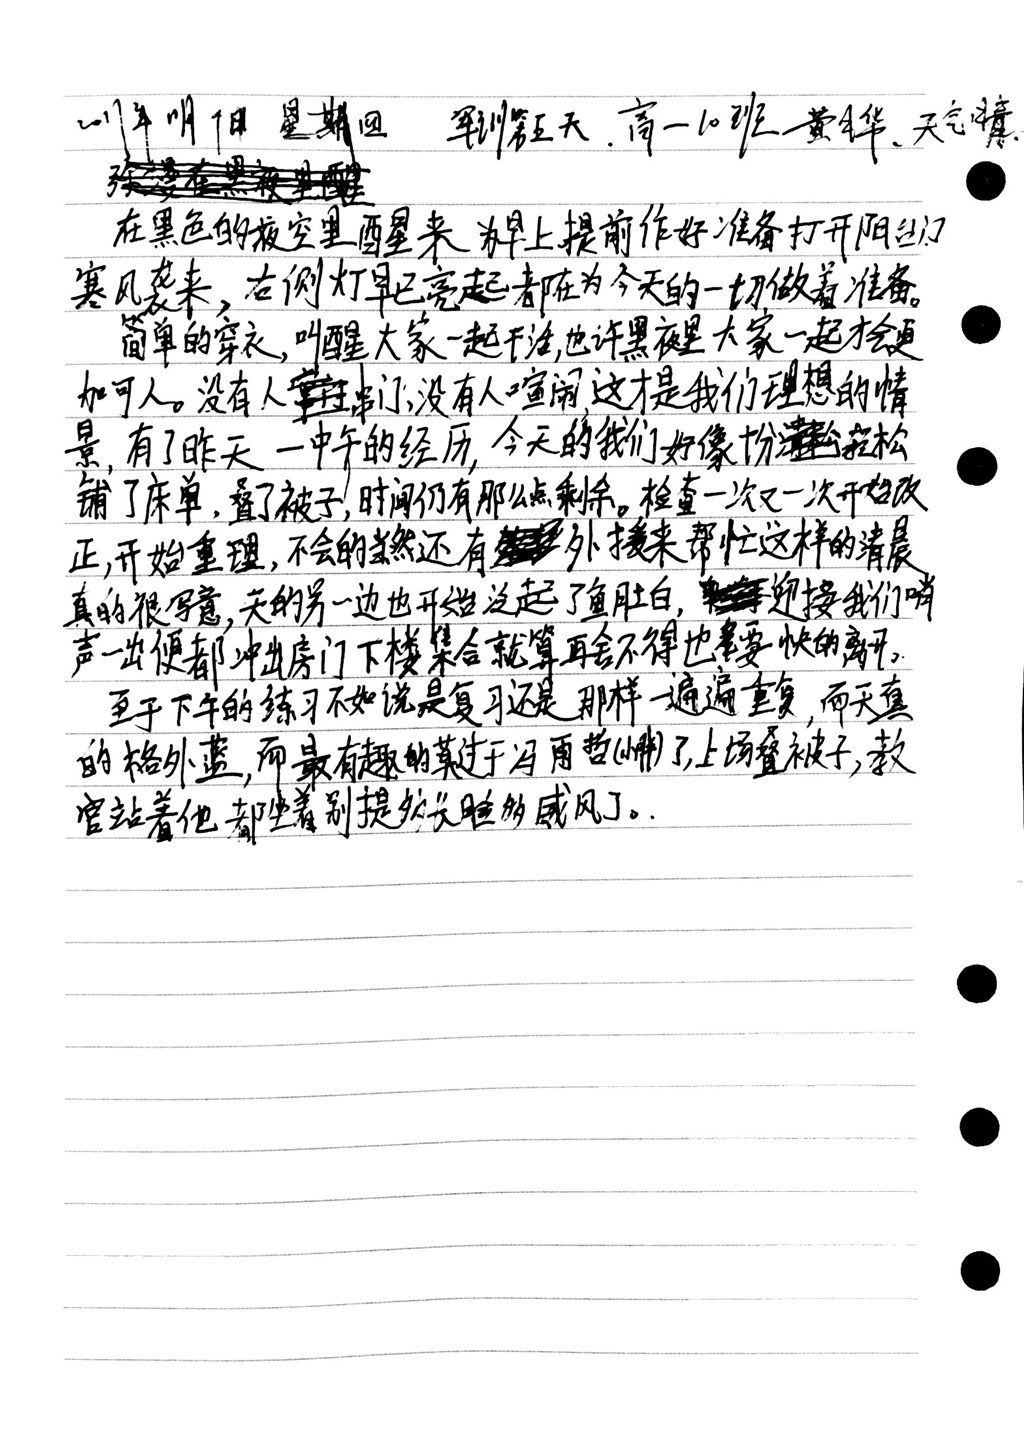 星期四 军训第五天.高一10班 黄华.天气晴.
在黑色的夜空里醒来 为早上提前作好准备打开阳台门
寒风袭来,右侧灯早已亮起都在为今天的一切做着准备。
简单的穿衣,叫醒大家一起干活,也许黑夜里大家一起才会更
加可人。没有人串门,没有人喧闹,这才是我们理想的情
景,有了昨天一中午的经历,今天的我们好像十分轻松
铺了床单,叠了被子,时间仍有那么点剩余。检查一次又一次开始改
正,开始重理,不会的当然还有外援来帮忙这样的清晨
真的很写意,天的另一边也开始泛起了鱼肚白,迎接我们哨
声一出便都冲出房门下楼集合就算再舍不得也要快的离开。
至于下午的练习不如说是复习还是那样一遍遍重复,而天真
的格外蓝,而最有趣的莫过于冯雨哲了,上场叠被子,教
官站着他都坐着别提多威风了。